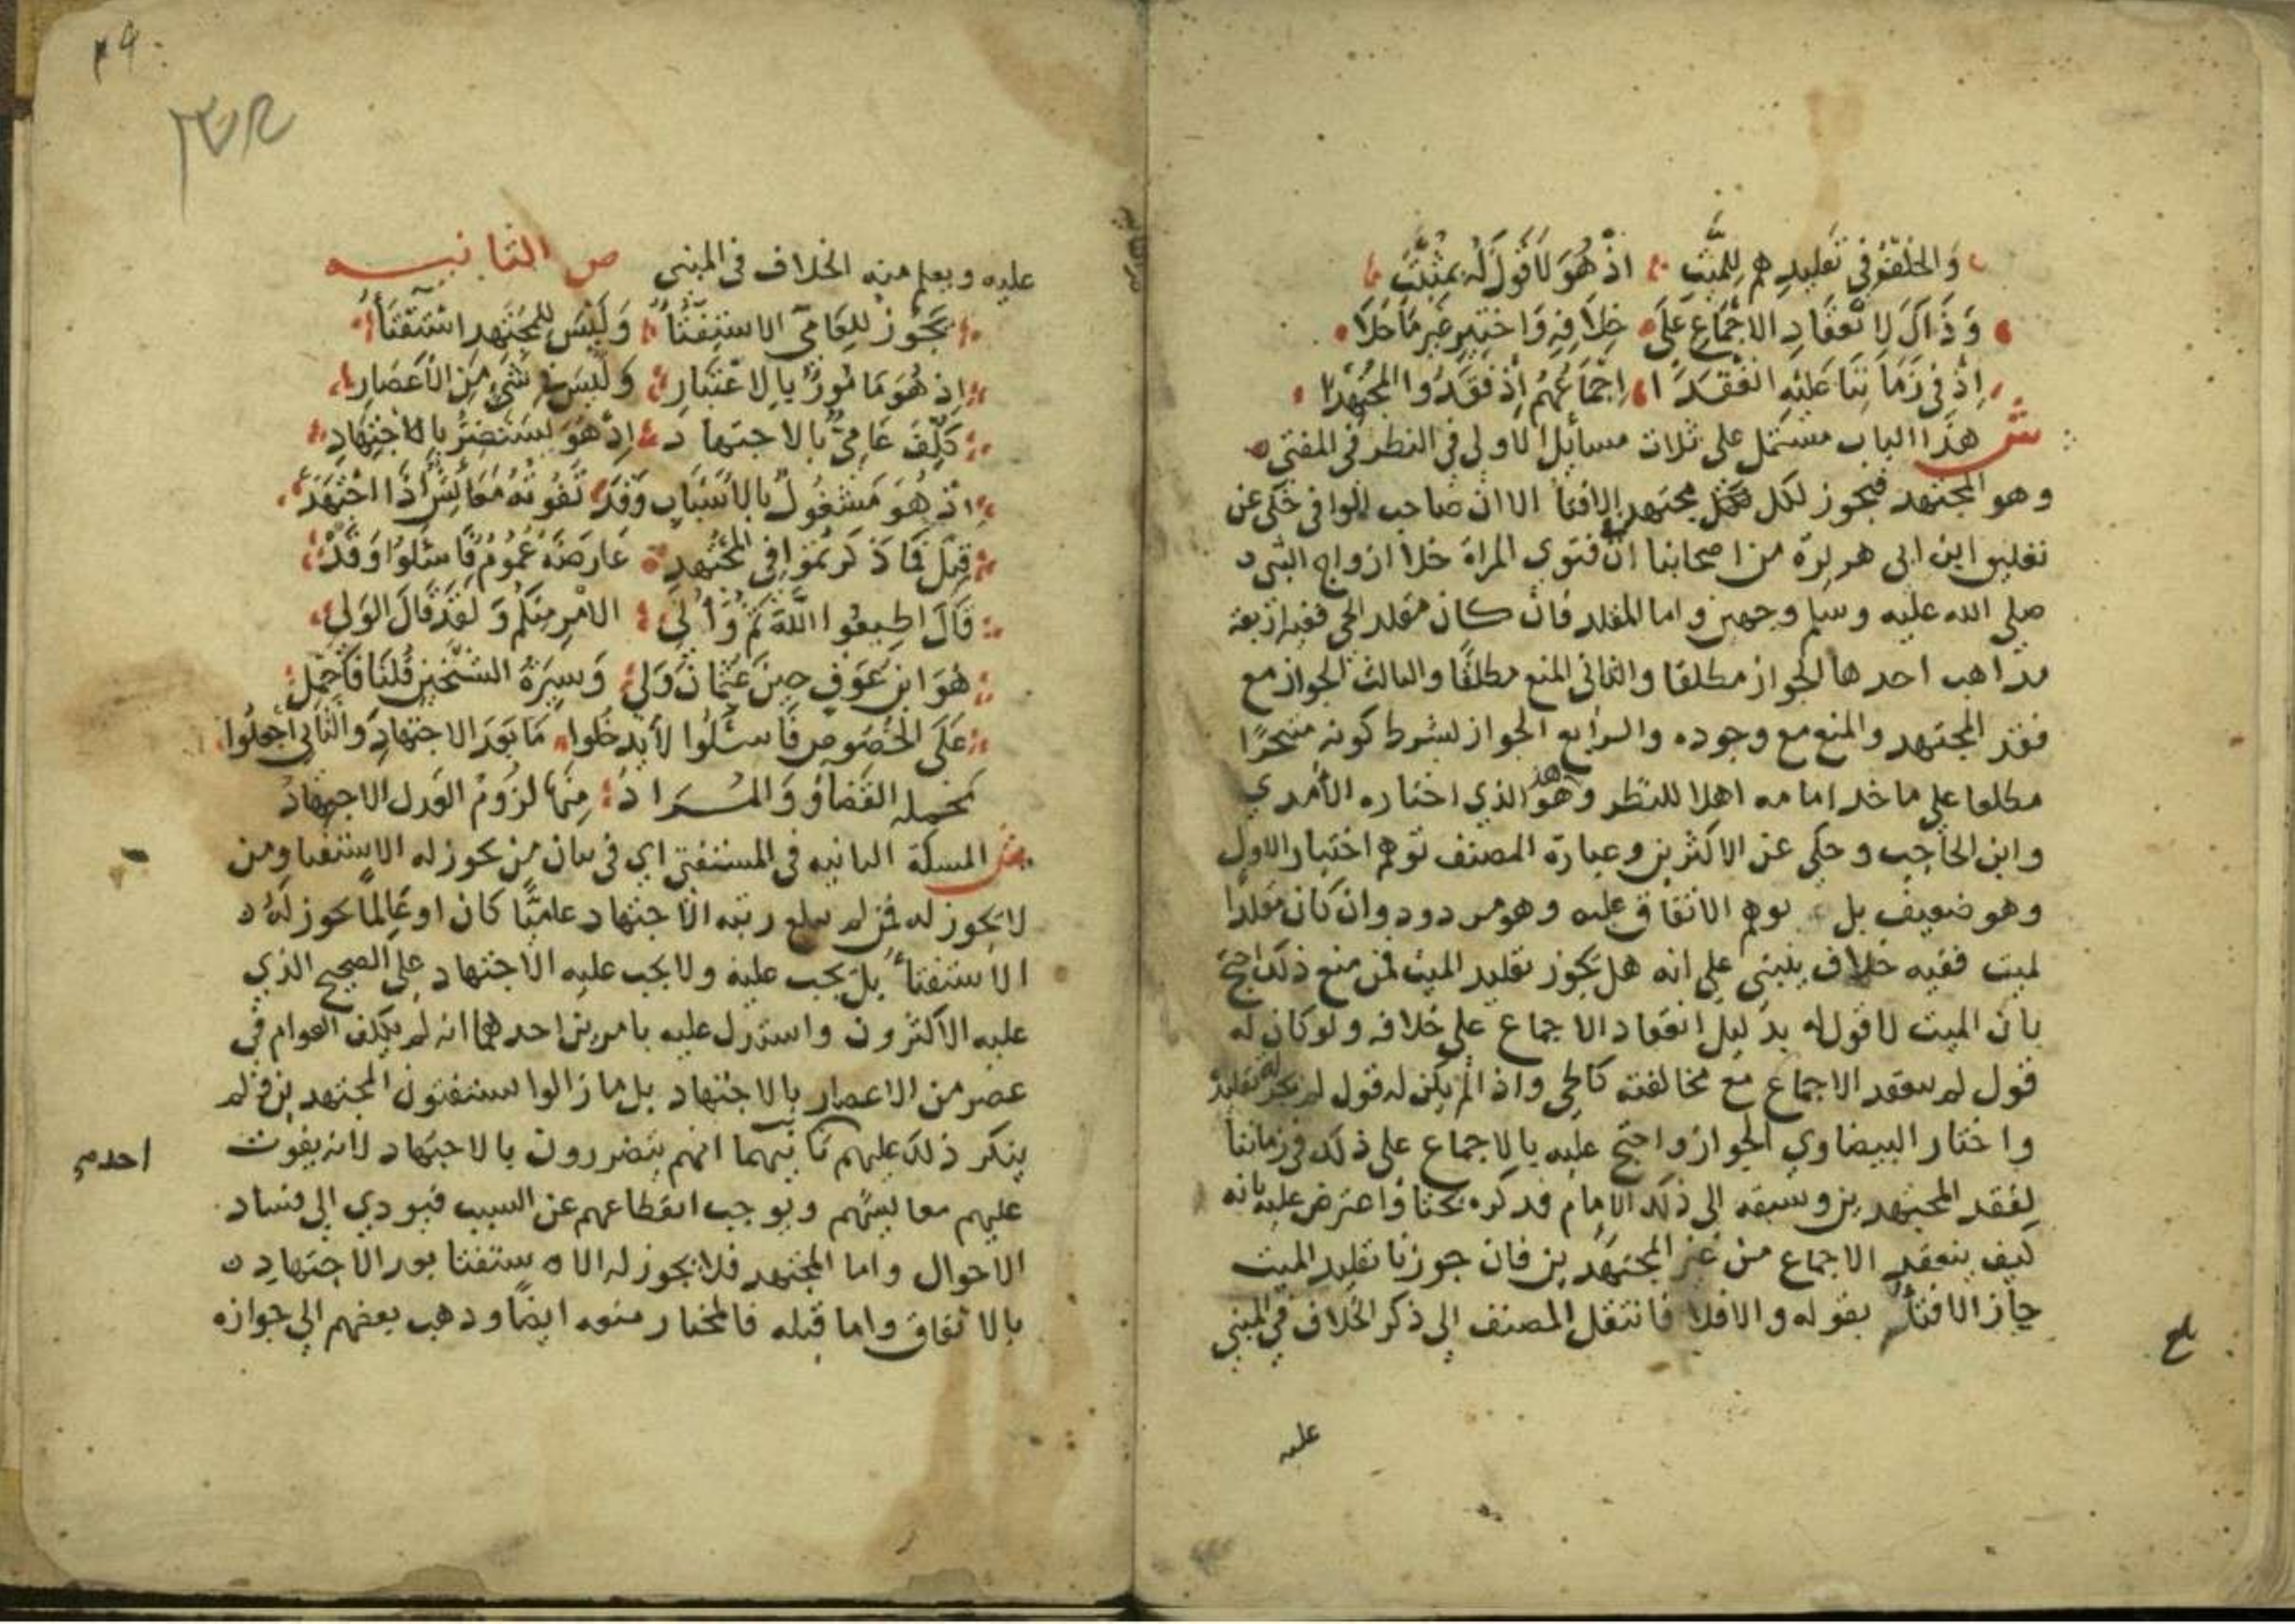 والخلف في تقليدهم للميت اذ هو لا قول له بمثبت
وذاك لانعقاد الاجماع على خلافه واختير غير ما خلا
اذ في زماننا عليه انعقدا اجماعهم اذ فقدوا المجتهدا
ش هذا الباب مشتمل على ثلاث مسائل الاولى في النظر في المفتي
وهو المجتهد فيجوز لكل مجتهد الافتا الا ان صاحب الوافي حكى عن
تعليق ابن ابي هريرة من اصحابنا ان في فتوى المراة خلا ازواج النبي
صلى الله عليه وسلم وجهين واما المقلد فان كان مقلد الحي ففيه اربعة
مذاهب احدها الجواز مطلقا والثاني المنع مطلقا والثالث الجواز مع
فقد المجتهد والمنع مع وجوده والرابع الجواز بشرط كونه متبحرا
مطلعا على ماخذ امامه اهلا للنظر وهذا هو الذي اختاره الآمدي
وابن الحاجب وحكي عن الاكثرين وعبارة المصنف توهم اختيار الاول
وهو ضعيف بل توهم الاتفاق عليه وهو مردود وان كان مقلدا
لميت ففيه خلاف ينبني على انه هل يجوز تقليد الميت فمن منع ذلك احتج
بان الميت لا قول له بدليل انعقاد الاجماع على خلافه ولو كان له
قول لم ينعقد الاجماع مع مخالفته كالحي واذا لم يكن له قول لم يجز تقليده
واختار البيضاوي الجواز واحتج عليه بالاجماع على ذلك في زماننا
لفقد المجتهدين وسبقه الى ذلك الامام فذكره بحثا واعترض عليه بانه
كيف ينعقد الاجماع من غير المجتهدين فان جوزنا تقليد الميت
جاز الافتاء بقوله والا فلا فانتقل المصنف الى ذكر الخلاف في المبني
بلغ
عليه
عليه ويعلم منه الخلاف في المبنى ص الثانيه
يجوز للعامي الاستفتاء وليس للمجتهد استفتاء
اذ هو مامور بالاعتبار وليس في شيء من الاعصار
كلف عامي بالاجتهاد اذ هو يستضر بالاجتهاد
اذ هو مشغول بالاسباب وقد تفوته معائش اذا اجتهد
قيل فما ذكرتموا في المجتهد عارضه عموم فاسئلوا وقد
قال اطيعوا الله ثم واولي الامر منكم ولقد قال الولي
هو ابن عوف حين عثمان ولي وسيرة الشيخين قلنا فاحمل
على الخصوص فاسئلوا لا يدخلوا ما بعد الاجتهاد والثاني اجعلوا
محمله القضاء والمراد منها لزوم العدل الاجتهاد
ش المسئلة الثانيه في المستفتي اي في بيان من يجوز له الاستفتا ومن
لا يجوز له فمن لم يبلغ رتبه الاجتهاد عاميا كان او عالما يجوز له
الاستفتاء بل يجب عليه ولا يجب عليه الاجتهاد على الصحيح الذي
عليه الاكثرون واستدل عليه بامرين احدهما انه لم يكلف العوام في
عصر من الاعصار بالاجتهاد بل ما زالوا يستفتون المجتهدين ولم
ينكر ذلك عليهم ثانيهما انهم يتضررون بالاجتهاد لانه يفوت
احد
عليهم معايشهم ويوجب انقطاعهم عن السبب فيودي الى فساد
الاحوال واما المجتهد فلا يجوز له الاستفتا بعد الاجتهاد
بالاتفاق واما قبله فالمختار منعه ايضا وذهب بعضهم الى جوازه